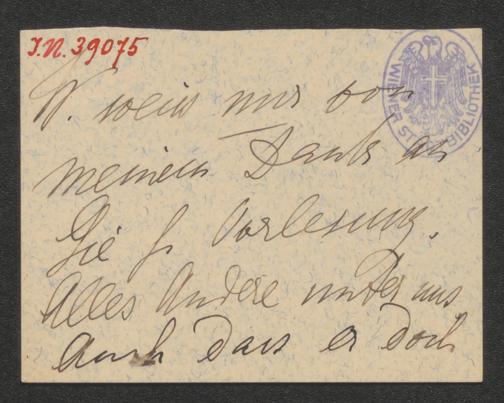 I.N. 39075
WIENER STADTBIBLIOTHEK
W. weiss nur von
meinem Dank an
Sie f. Vorlesung.
Alles Andere unter uns
auch dass er doch